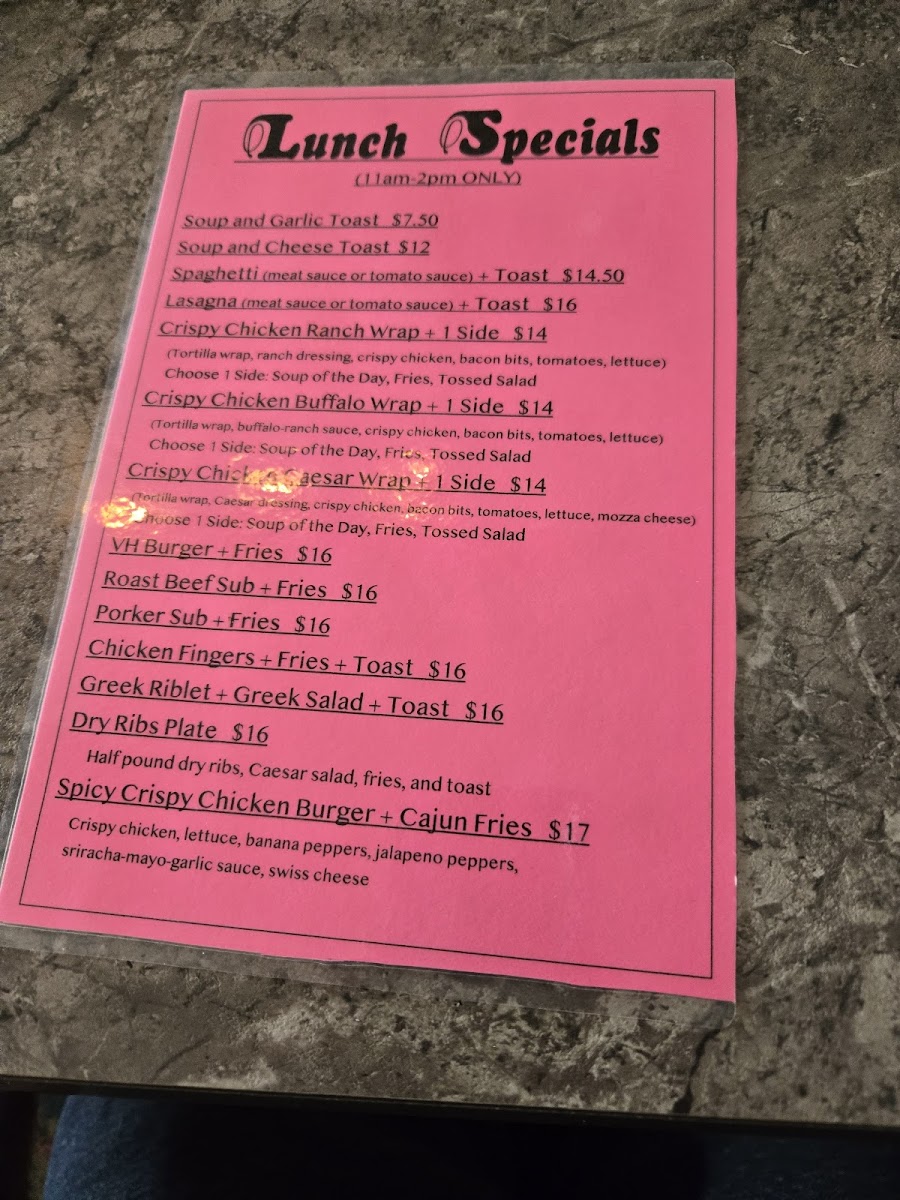 Lunch Specials
(11am-2pm ONLY)
Soup and Garlic Toast $7.50
Soup and Cheese Toast $12
Spaghetti (meat sauce or tomato sauce) + Toast $14.50
Lasagna (meat sauce or tomato sauce) + Toast $16
Crispy Chicken Ranch Wrap + 1 Side $14
(Tortilla wrap, ranch dressing, crispy chicken, bacon bits, tomatoes, lettuce)
Choose 1 Side: Soup of the Day, Fries, Tossed Salad
Crispy Chicken Buffalo Wrap + 1 Side $14
(Tortilla wrap, buffalo-ranch sauce, crispy chicken, bacon bits, tomatoes, lettuce)
Choose 1 Side: Soup of the Day, Fries, Tossed Salad
Crispy Chicken Caesar Wrap + 1 Side $14
(Tortilla wrap, Caesar dressing, crispy chicken, bacon bits, tomatoes, lettuce, mozza cheese)
Choose 1 Side: Soup of the Day, Fries, Tossed Salad
VH Burger + Fries $16
Roast Beef Sub + Fries $16
Porker Sub + Fries $16
Chicken Fingers + Fries + Toast $16
Greek Riblet + Greek Salad + Toast $16
Dry Ribs Plate $16
Half pound dry ribs, Caesar salad, fries, and toast
Spicy Crispy Chicken Burger + Cajun Fries $17
Crispy chicken, lettuce, banana peppers, jalapeno peppers,
sriracha-mayo-garlic sauce, swiss cheese